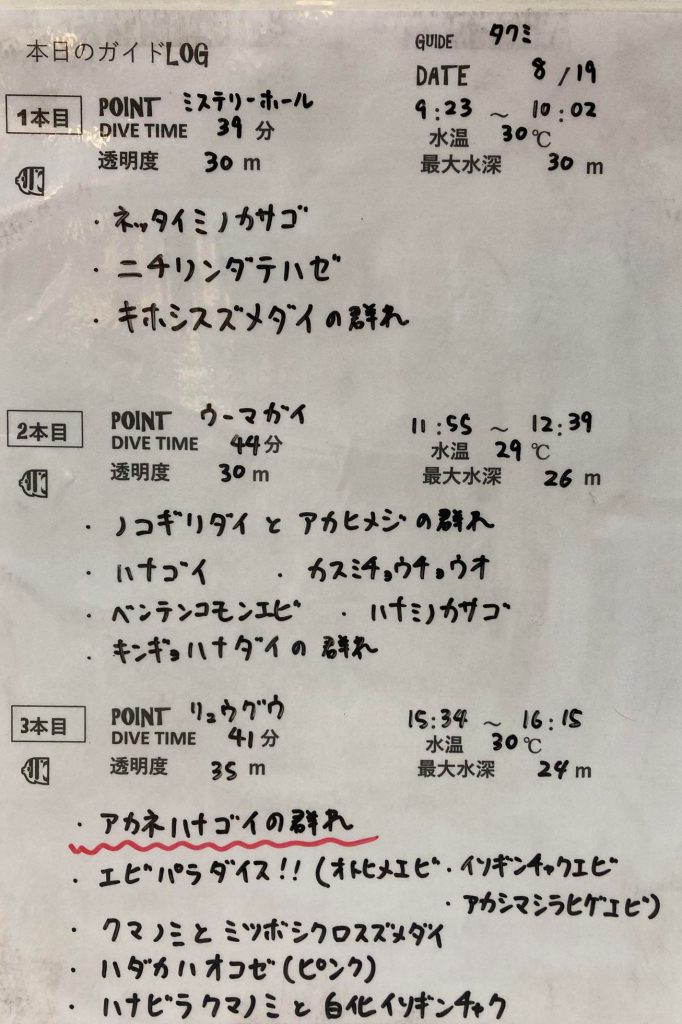 本日のガイドLOG
GUIDE タクミ
DATE 8/19
1本目 POINT ミステリーホール 9:23 ～ 10:02
DIVE TIME 39 分 水温 30℃
透明度 30 m 最大水深 30 m
・ネッタイミノカサゴ
・ニチリンダテハゼ
・キホシスズメダイの群れ
2本目 POINT ウーマガイ 11:55 ～ 12:39
DIVE TIME 44分 水温 29℃
透明度 30 m 最大水深 26 m
・ノコギリダイとアカヒメジの群れ
・ハナゴイ ・カスミチョウチョウオ
・ベンテンコモンエビ ・ハナミノカサゴ
・キンギョハナダイの群れ
3本目 POINT リュウグウ 15:34 ～ 16:15
DIVE TIME 41分 水温 30℃
透明度 35 m 最大水深 24 m
・アカネハナゴイの群れ
・エビパラダイス!! (オトヒメエビ・イソギンチャクエビ
・アカシマシラヒゲエビ)
・クマノミとミツボシクロスズメダイ
・ハダカハオコゼ(ピンク)
・ハナビラクマノミと白化イソギンチャク